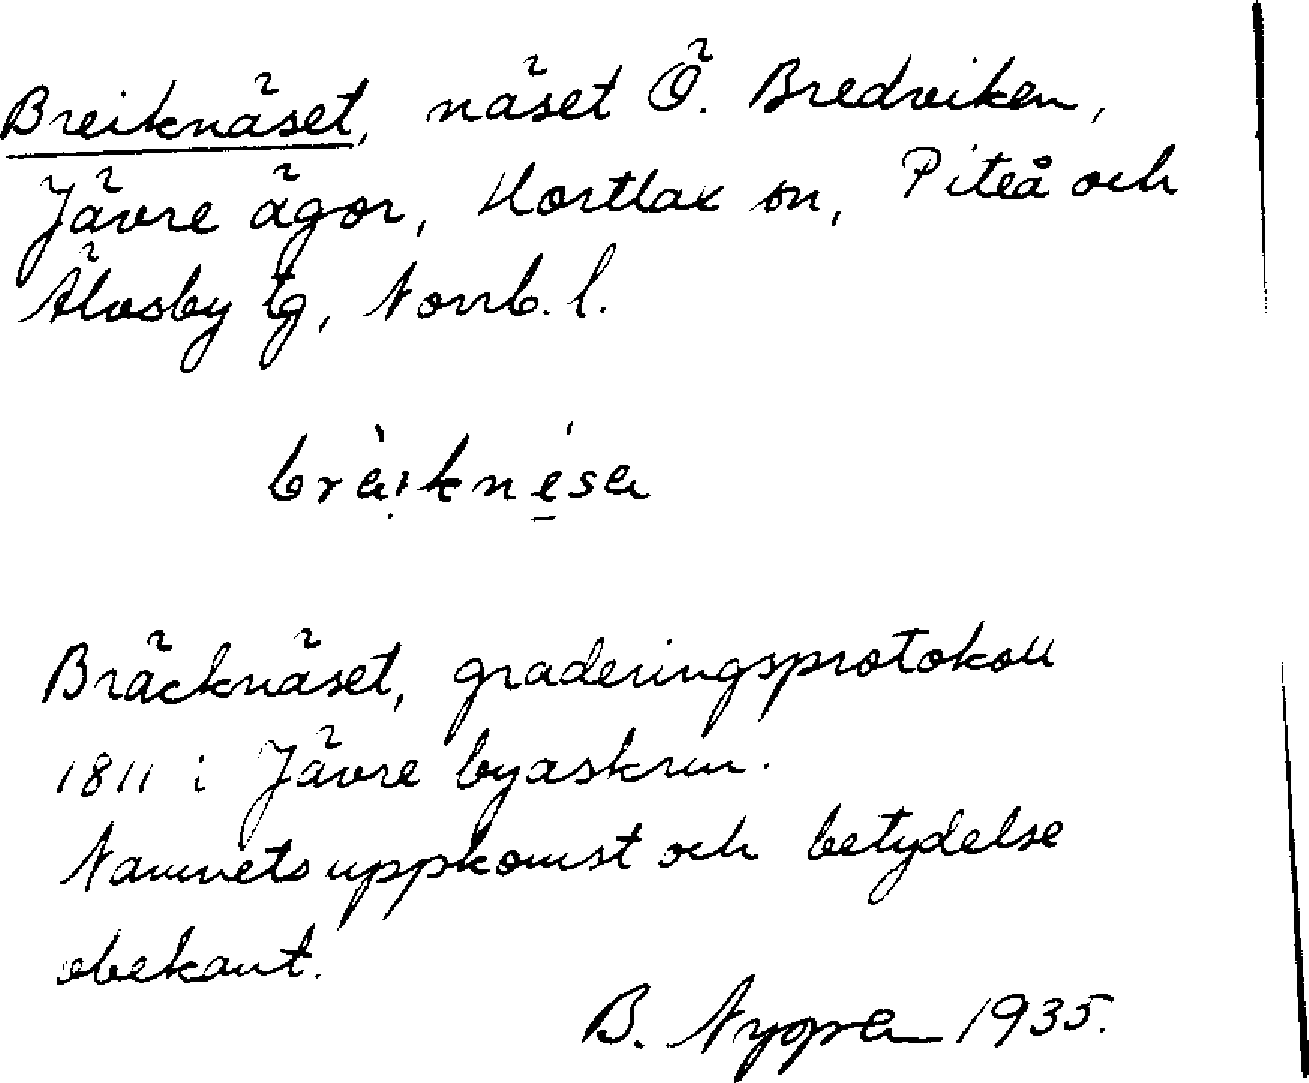 Breiknäset, näset Ö. Bredviken,
Jävre ägor, Hortlax sn, Piteå och
Älvsby tg, Norrb. l.
bràiknésa
Bräcknäset, graderingsprotokoll
1811 i Jävre byaskrin.
Namnets uppkomst och betydelse
obekant.
B. Nygren 1935.